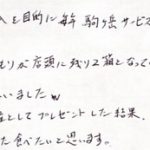 入を目的に毎年駒ヶ岳サービス
むりが店頭に残り2箱となって
いいました
としてプレゼントした結果、
た食べたいと思います。